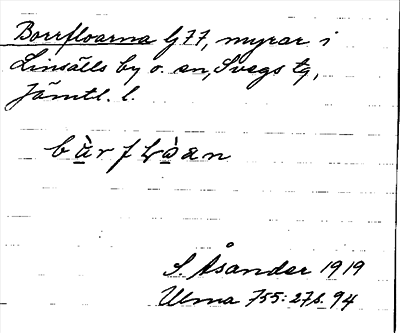 Borrfloarna G77, myrar i
Linsälls by o. sn, Svegs tg,
Jämtl. l.
bùrfɫòan
S. Åsander 1919
Ulma 755:27 s. 94